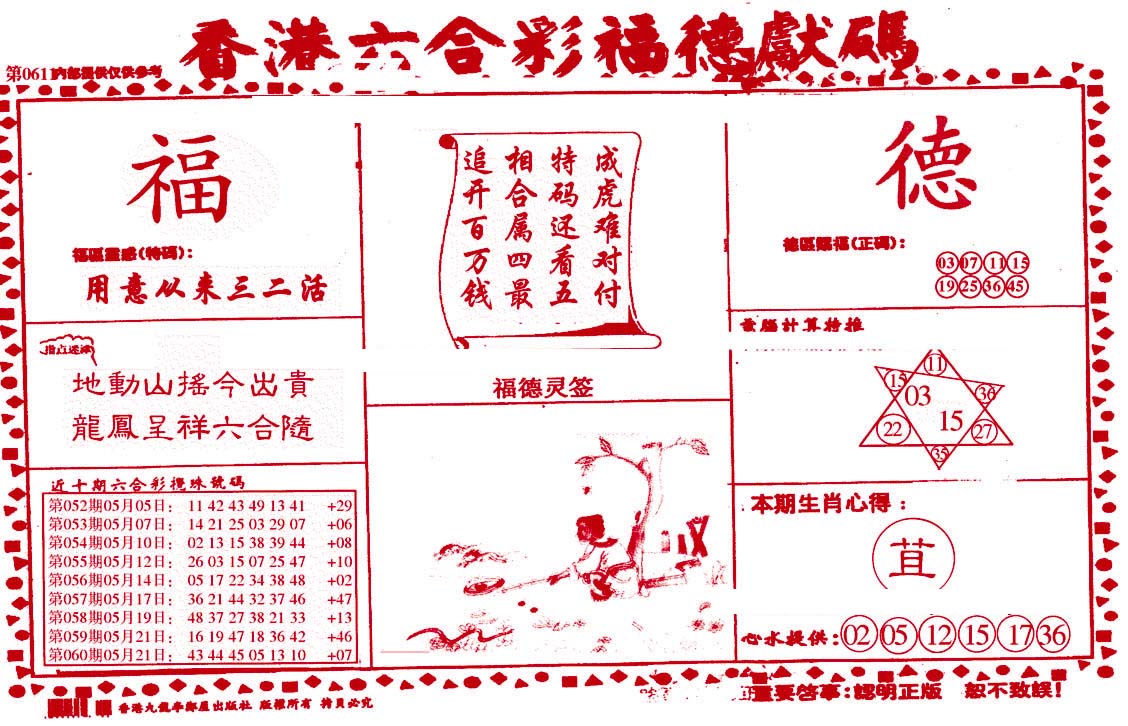 香港六合彩福德獻碼
第061 内部提供仅供參考
福
福區靈感(特碼):
用意从来三二活
成虎难对付
特码还看五
相合属四最
追开百万钱
德
德區賜福(正碼):
03 07 11 15
19 25 36 45
指点迷津
地動山搖今出貴
龍鳳呈祥六合隨
福德灵签
電腦計算特推
11
15
03
36
22
15
27
35
近十期六合彩攪珠號碼
第052期05月05日: 11 42 43 49 13 41 +29
第053期05月07日: 14 21 25 03 29 07 +06
第054期05月10日: 02 13 15 38 39 44 +08
第055期05月12日: 26 03 15 07 25 47 +10
第056期05月14日: 05 17 22 34 38 48 +02
第057期05月17日: 36 21 44 32 37 46 +47
第058期05月19日: 48 37 27 38 21 33 +13
第059期05月21日: 16 19 47 18 36 42 +46
第060期05月21日: 43 44 45 05 13 10 +07
本期生肖心得:
苴
心水提供: 02 05 12 15 17 36
重要啓事:認明正版 恕不致誤!
香港九龍半鄰屋出版社 版權所有 拷貝必究